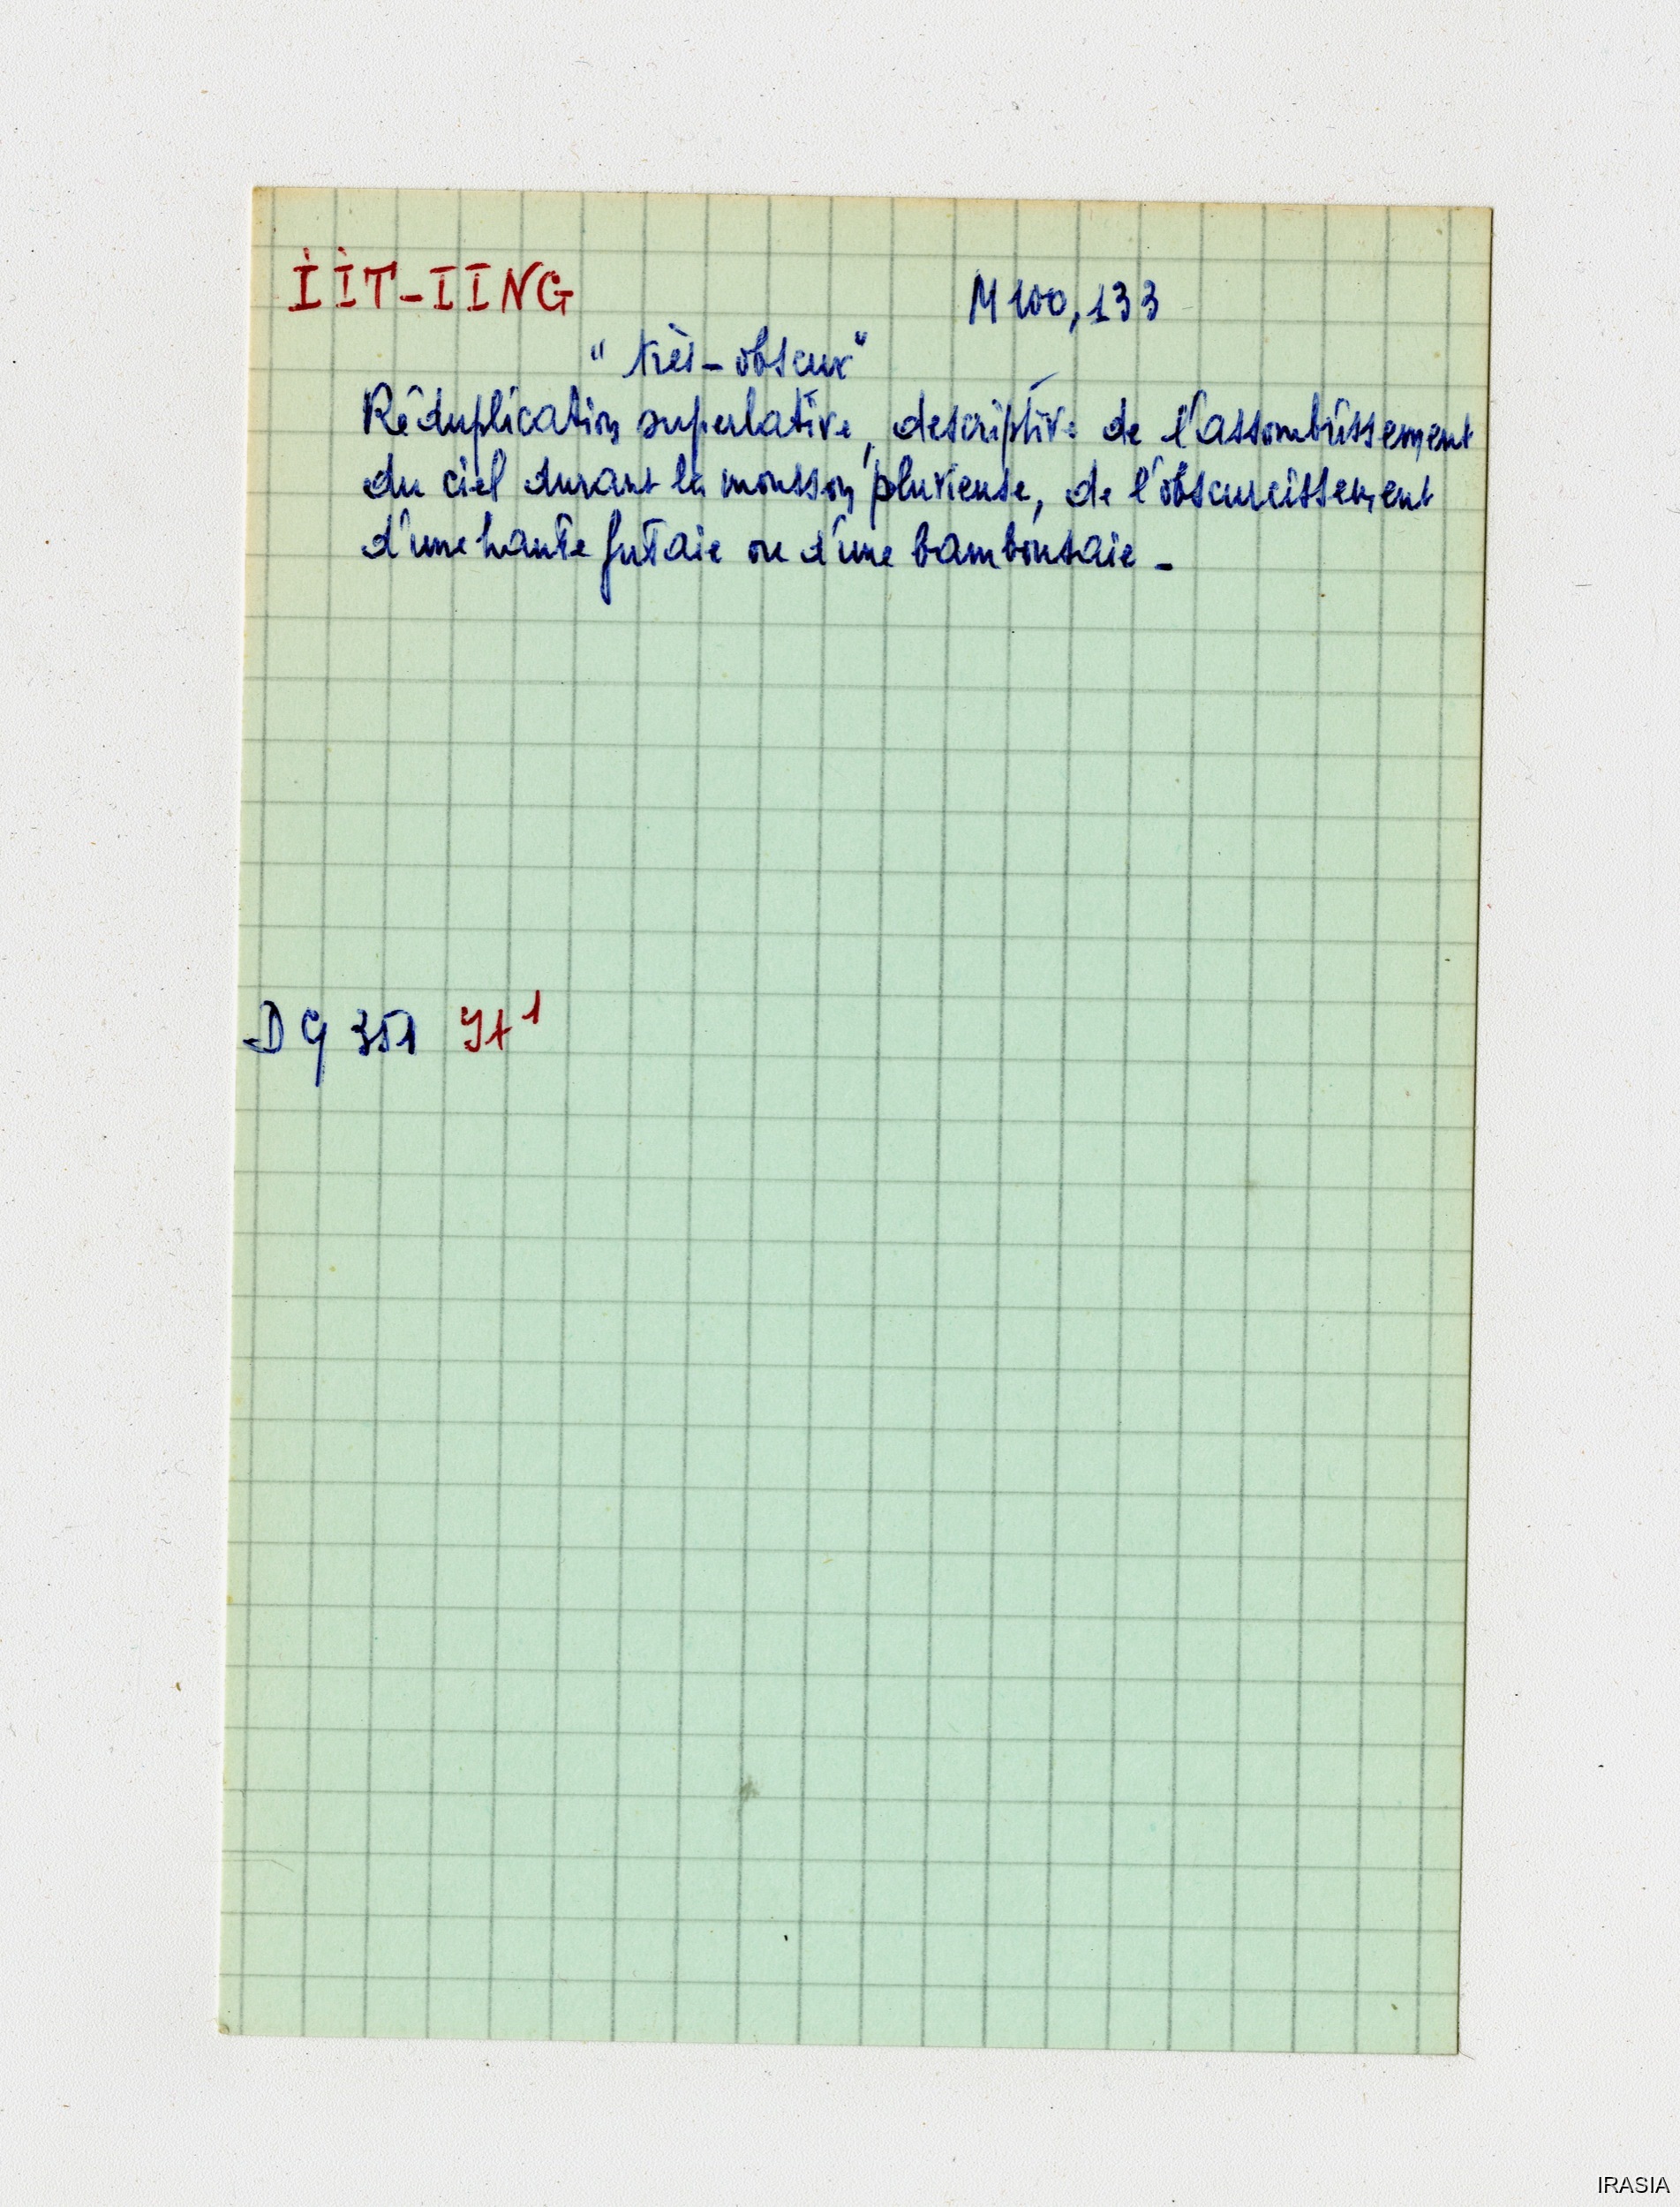 ÌÌT-IING
M 100, 133
" très-obscur"
Réduplication superlative, descriptive de l'assombrissement
du ciel durant la mousson pluvieuse, de l'obscurcissement
d'une haute futaie ou d'une bambousaie -
DG 351
IRASIA